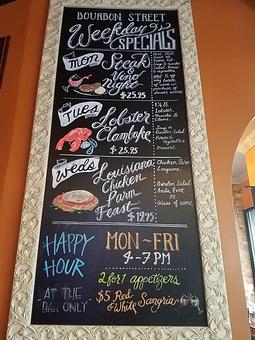 BOURBON STREET
Weekday
SPECIALS
mon
Steak
& Vino
Night
$25.95
TUES
Lobster
Clambake
$25.95
1¼ lb.
Lobster,
Mussels &
Clams
Soup or
Garden Salad
Potato &
Vegetable
Dessert
Weds
Louisiana
Chicken
Parm
Feast
$19.95
Chicken Parm
Linguine
Garden Salad
Soda, Pint
or
Glass of wine
HAPPY
HOUR
MON ~ FRI
4-7 PM
-AT THE
BAR ONLY
2 for 1 appetizers
$5 Red
& White Sangria